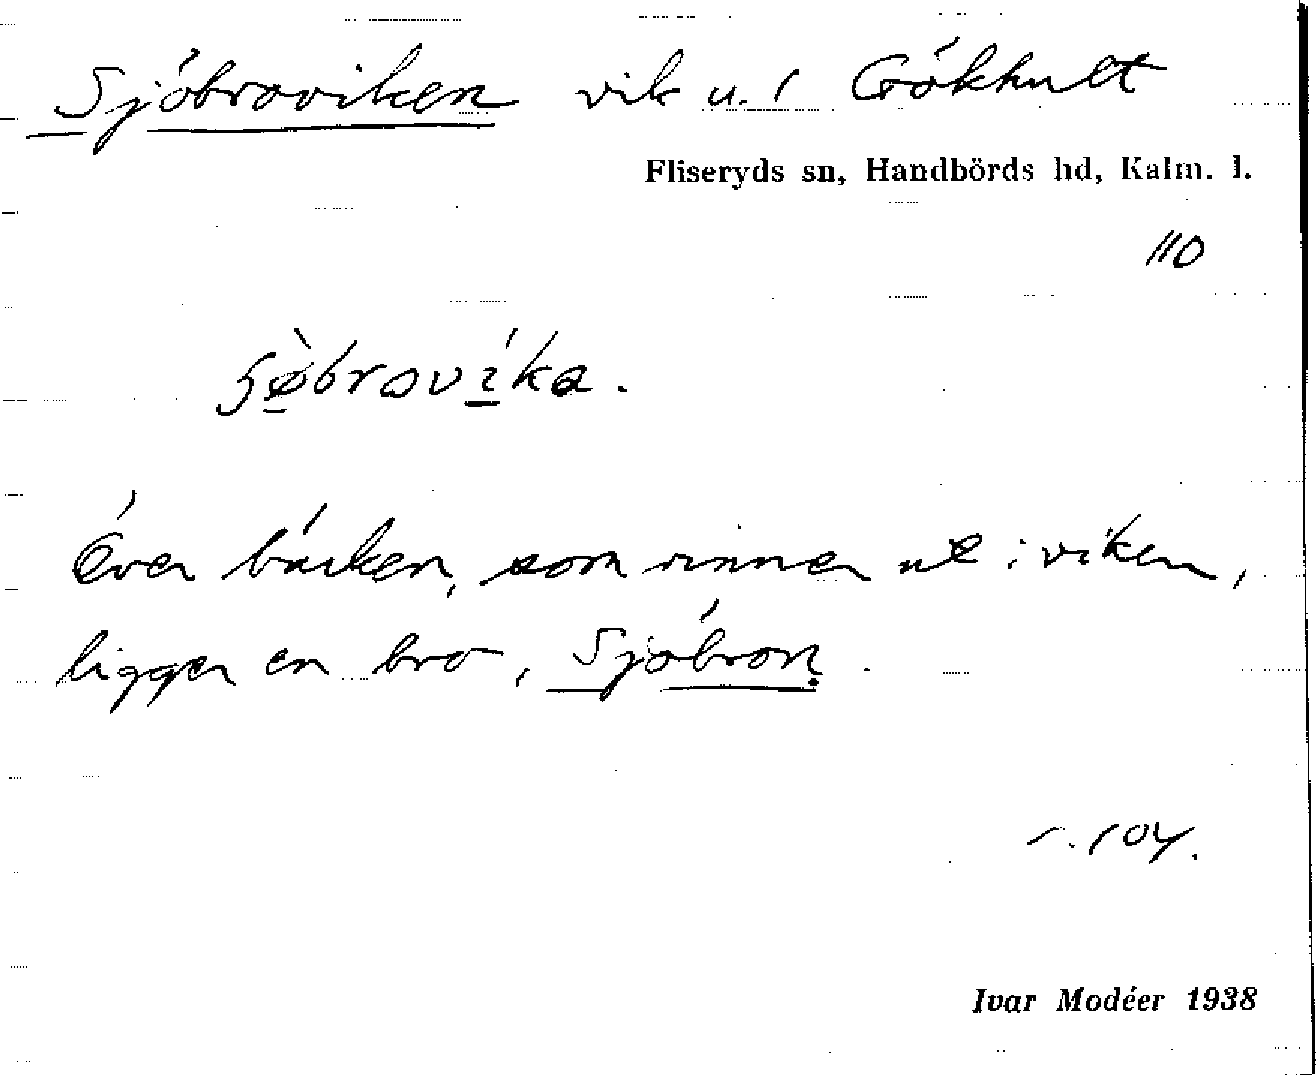 Sjöbroviken vik u. / Gökhult
Fliseryds sn, Handbörds hd, Kalm. l.
110
Över bäcken, som rinner ut i viken,
ligger en bro, Sjöbron.
104.
Ivar Modéer 1938